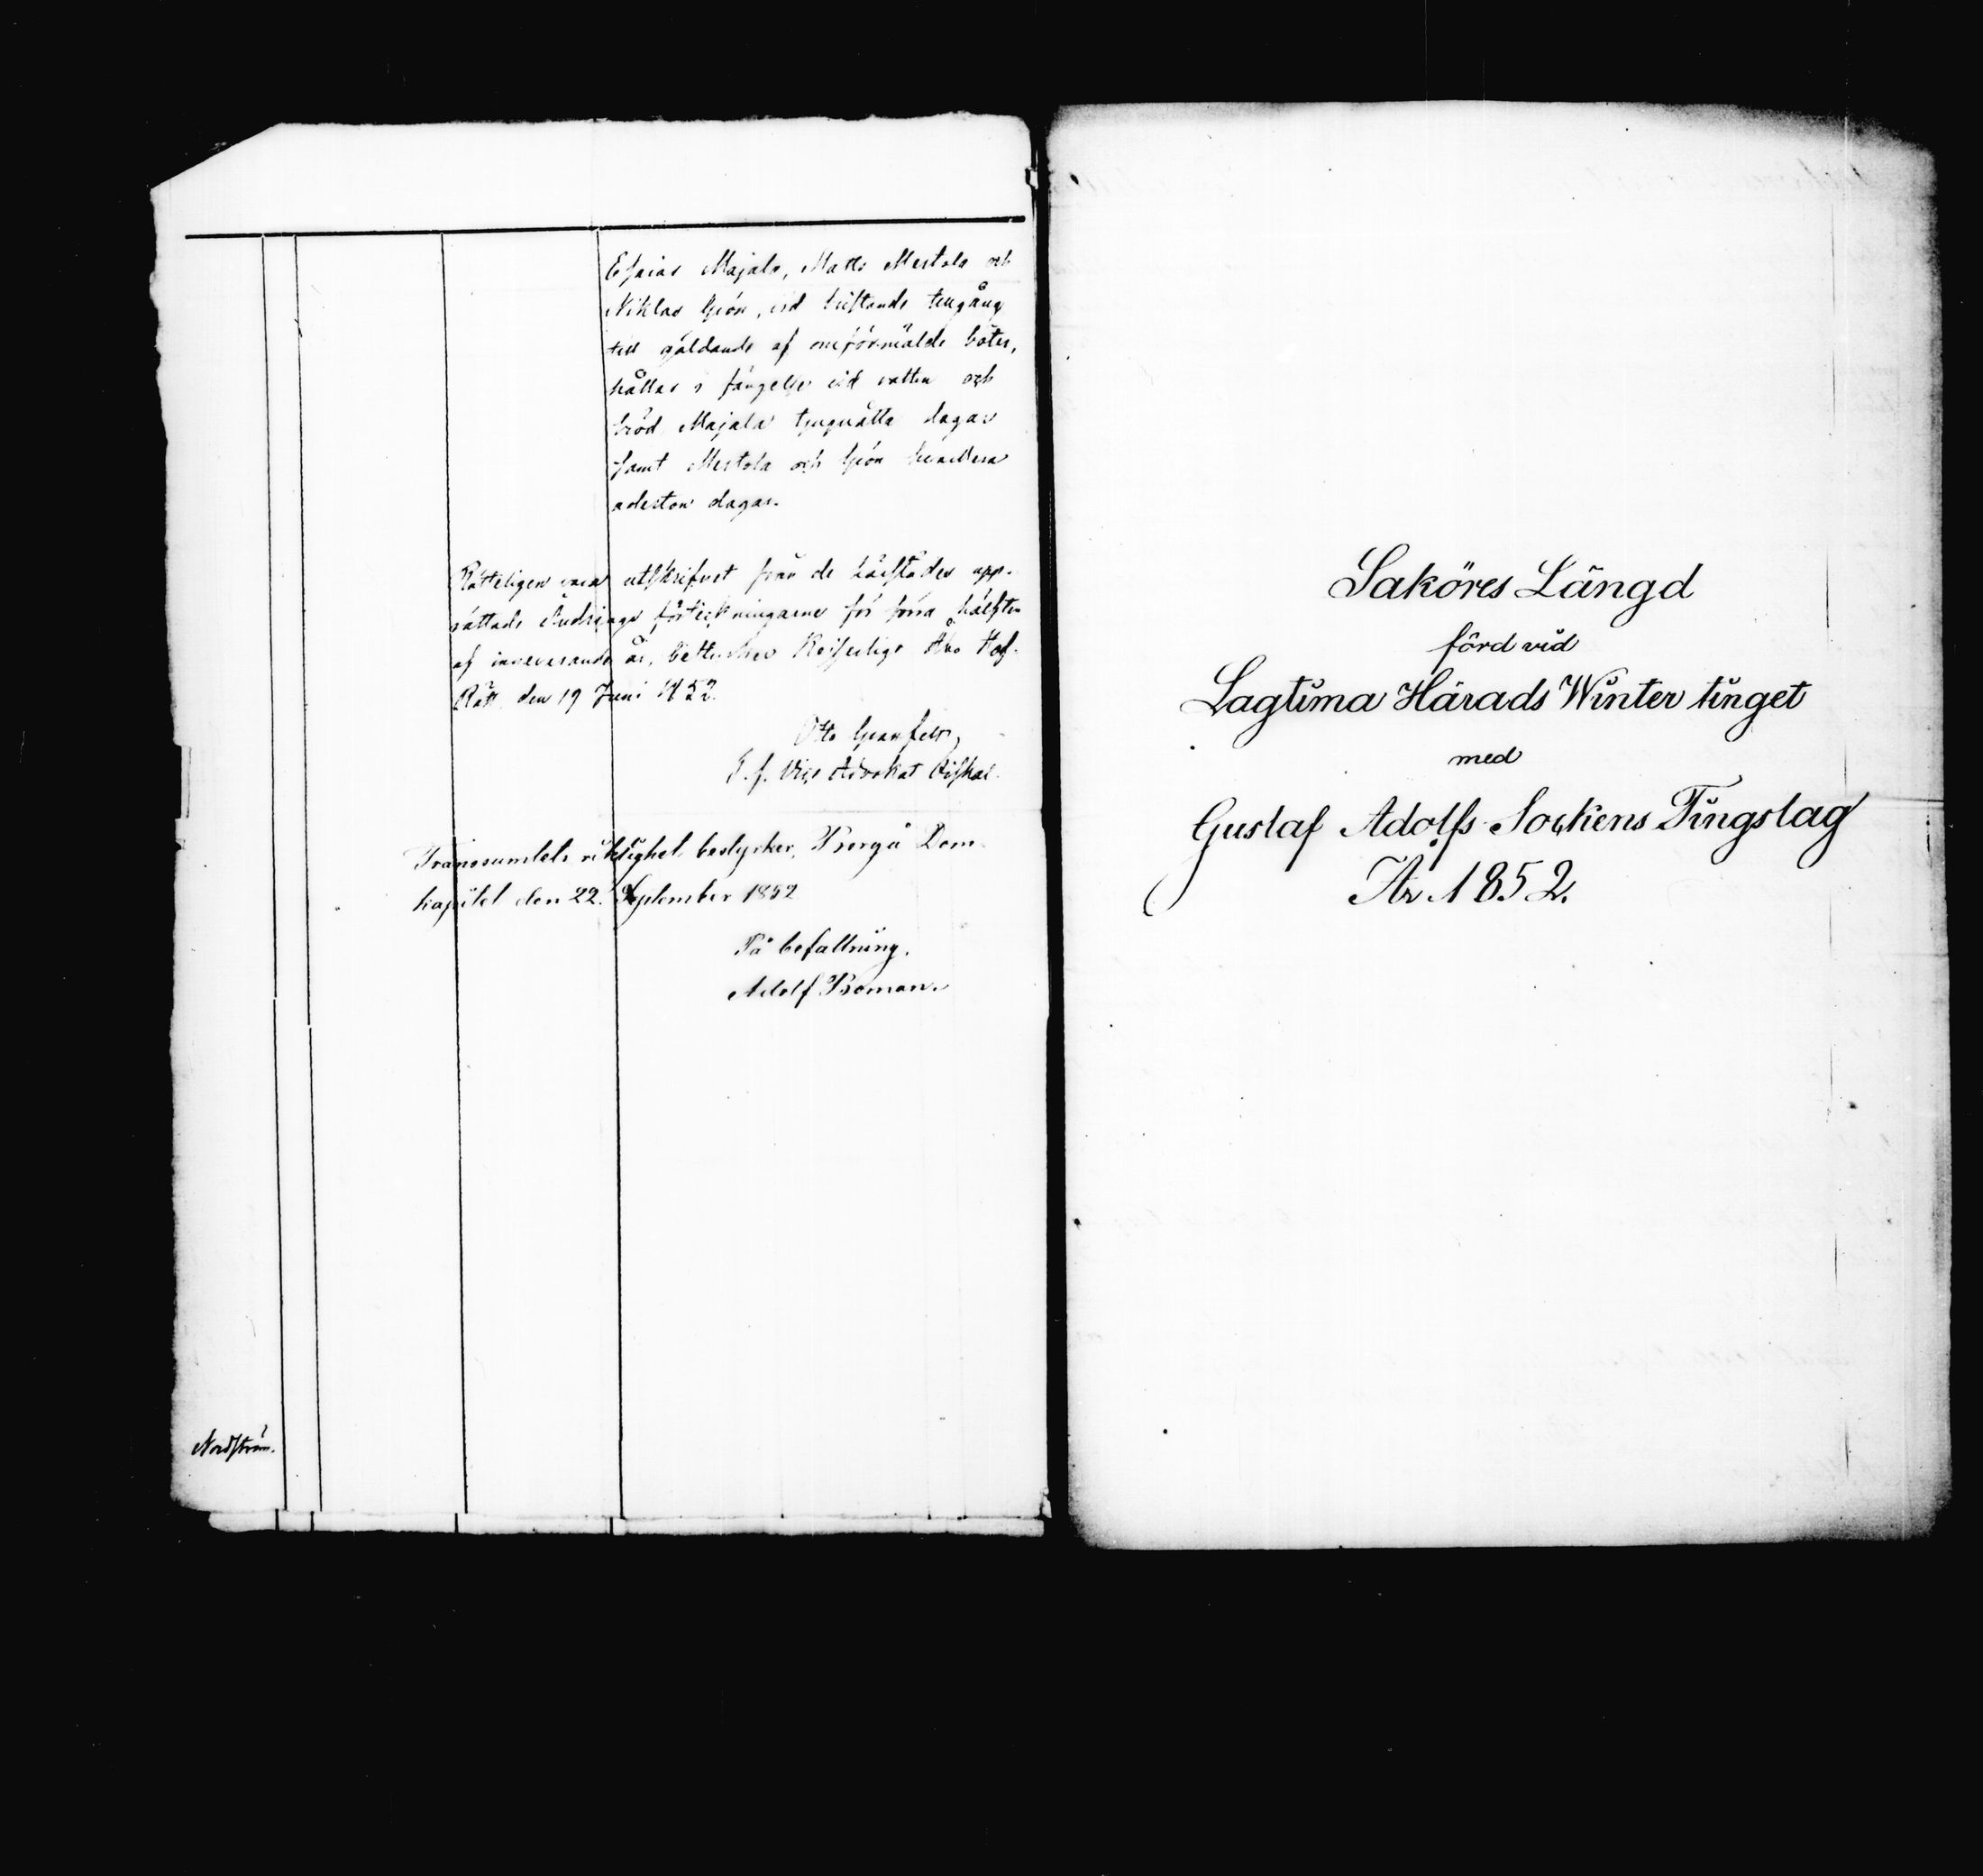 Esaias Majala, Matts Mestola och
Niklas Grön, vid bristande tillgång
till gäldande af omförmälde böter,
hållas i fängelse vid vatten och
bröd Majala tjuguåtta dagar
samt Mestola och Grön hvardera
aderton dagar.
Rätteligen vara utskrifvet från de härstädes upp-
rättade Ändrings förteckningarne för förra hälften
af innevarande år, betyckes Keiserliga Åbo Hof-
Rätt den 19 Juni 1852.
Otto Granfelt,
E. f. Vice Advokat Fiskal.
Transsumtets riktighet bestyrker, Borgå Dom-
kapitel den 22. September 1852
På befallning.
Adolf Boman.
Nordström.
Saköres Längd
förd vid
Lagtima Härads Winter tinget
med
Gustaf Adolfs Sockens Tingslag
År 1852.